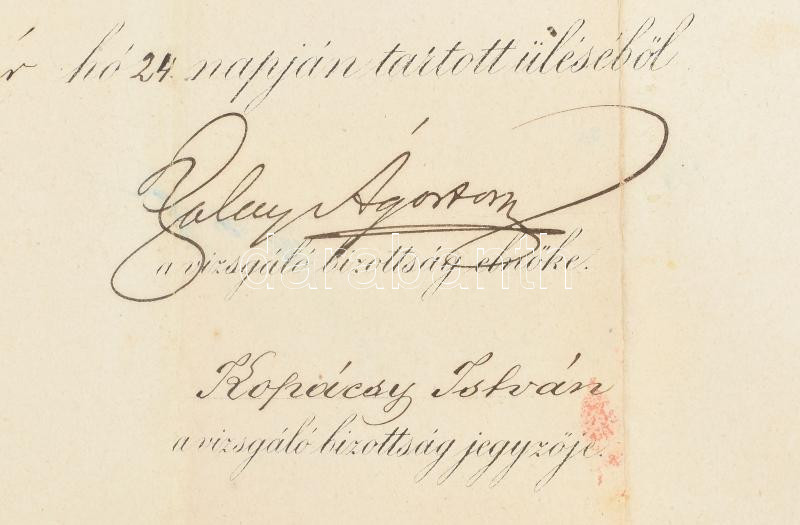 r hó 24. napján tartott üléséből
Zalay Ágoston
a vizsgáló bizottság elnöke.
darabanth
Kopácsy István
a vizsgáló bizottság jegyzője.